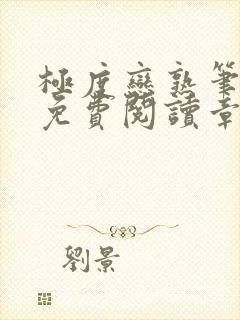 極度戀熟筆
免費閱讀章
劉景